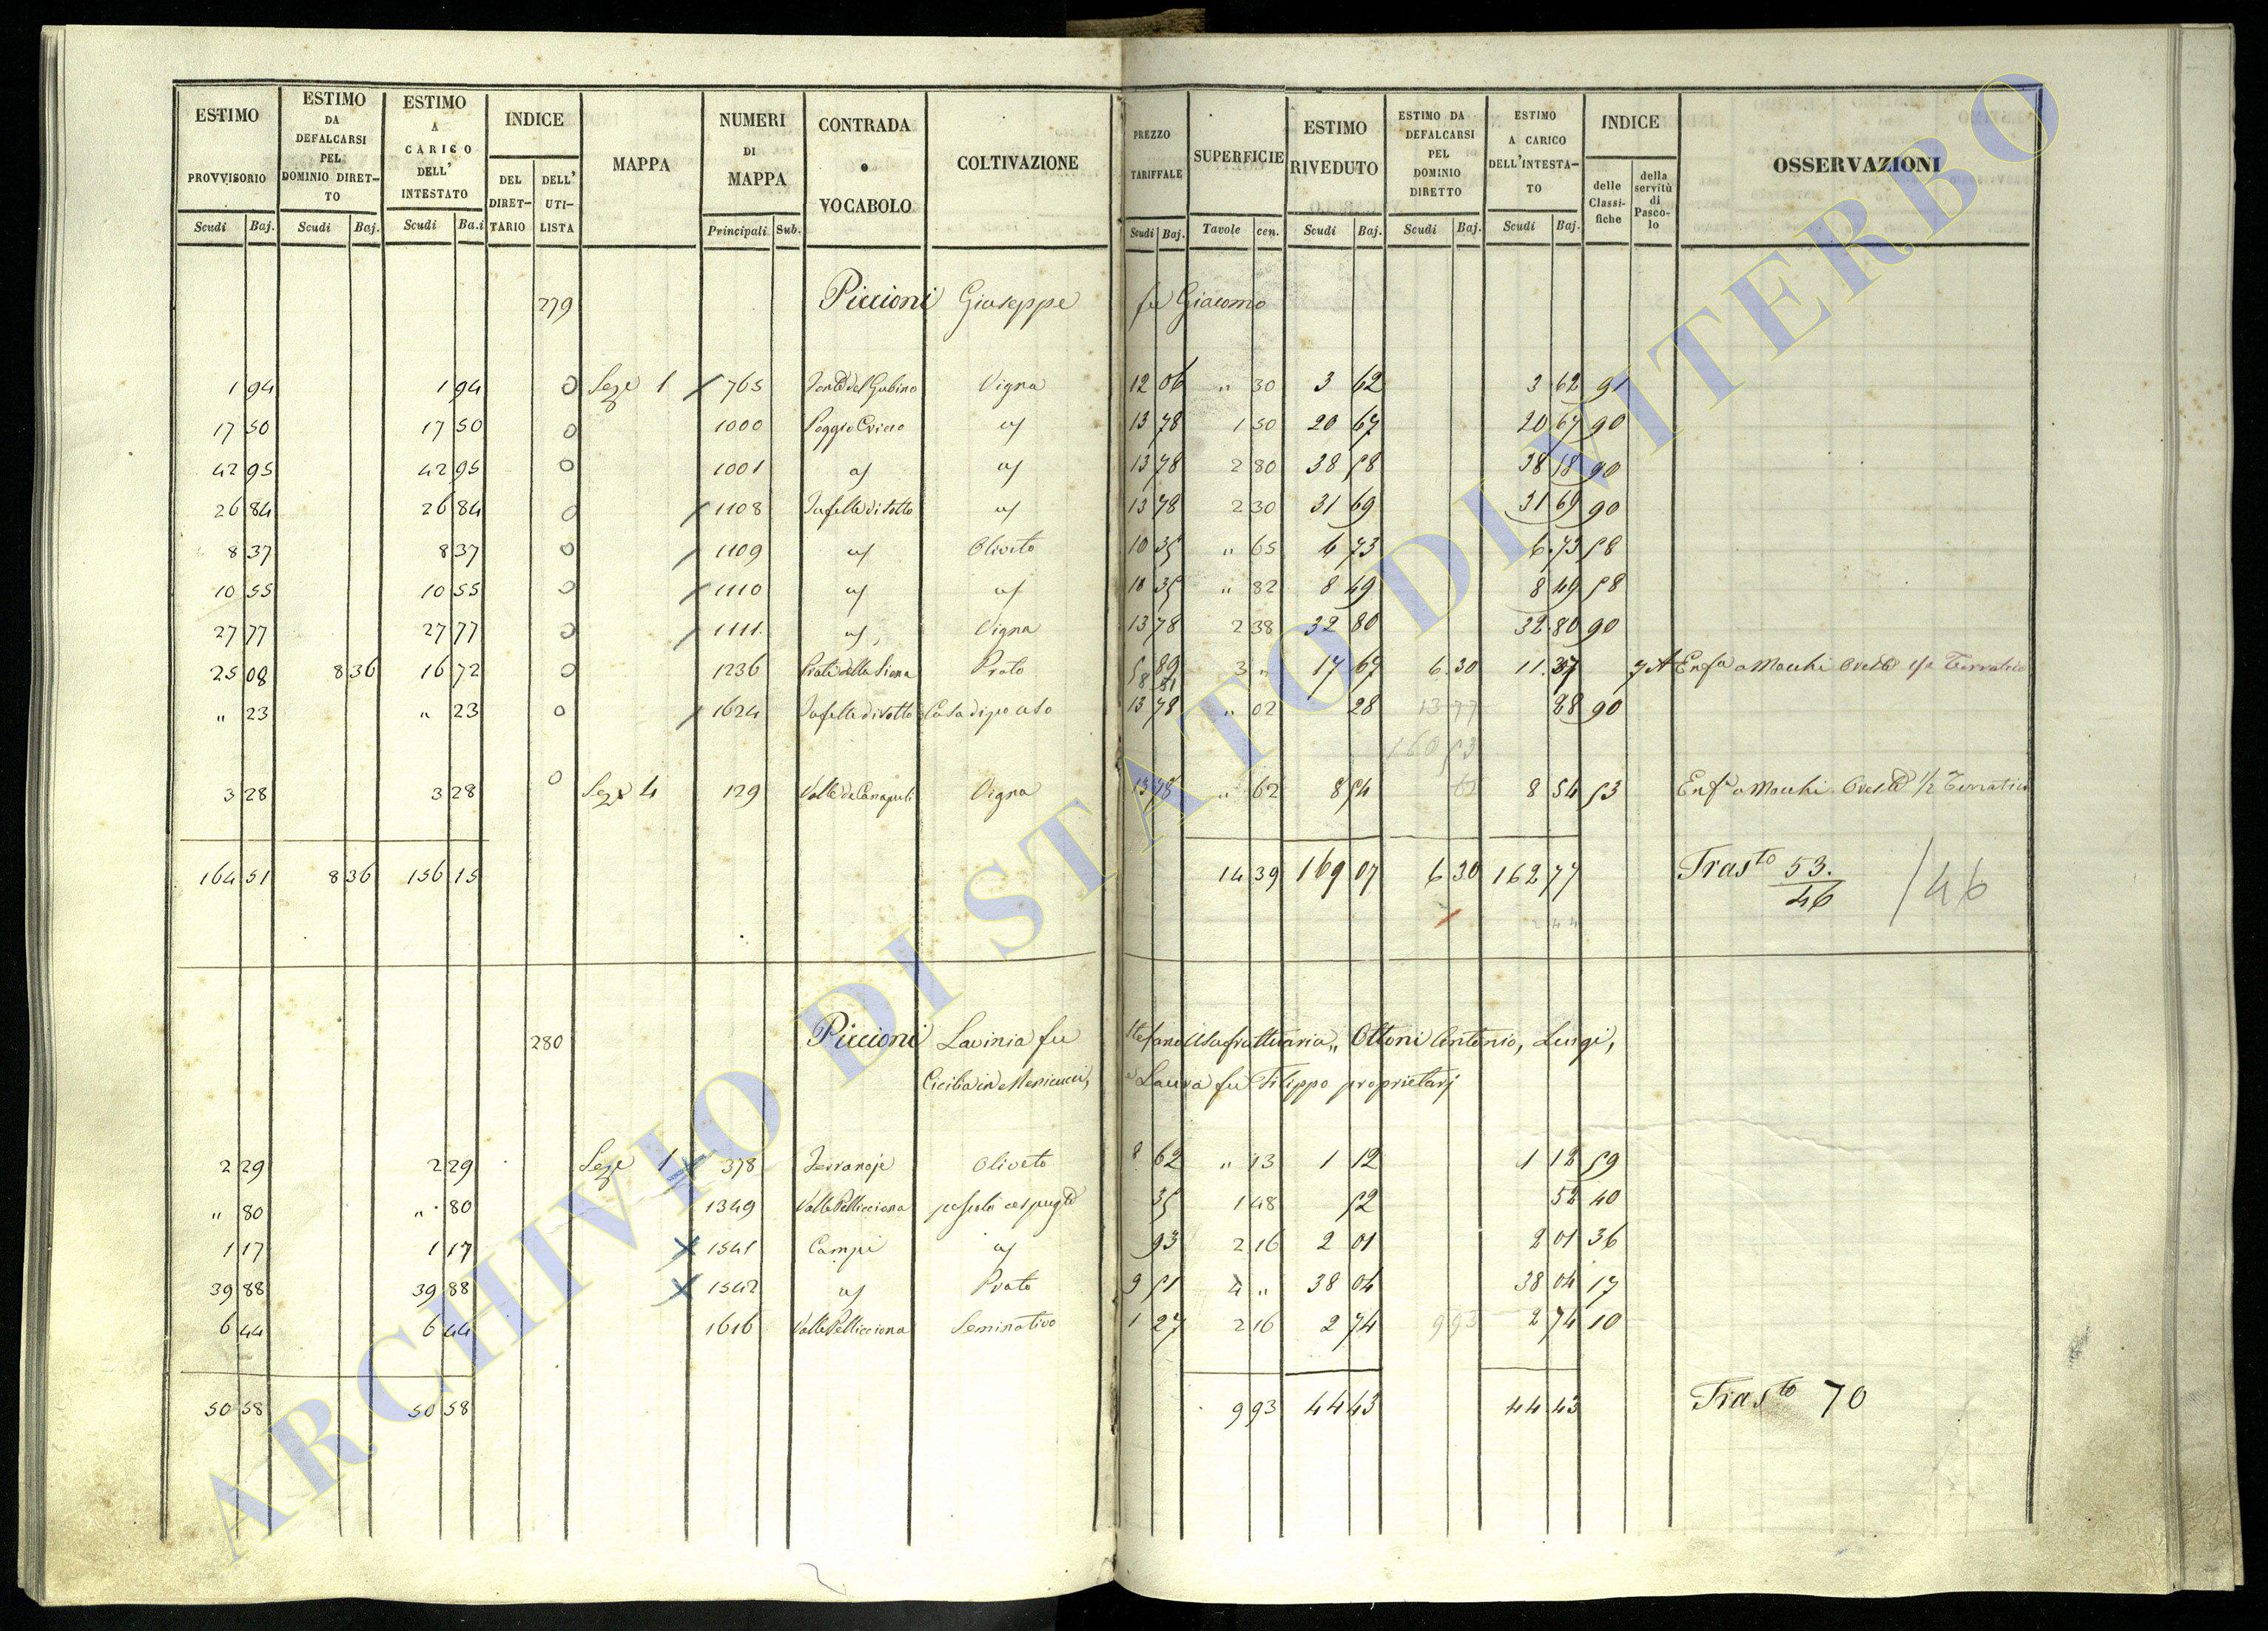 ESTIMO PROVVISORIO Scudi Baj.
ESTIMO DA DEFALCARSI PEL DOMINIO DIRET-TO Scudi Baj.
ESTIMO A CARICO DELL' INTESTATO Scudi Ba.i
INDICE DEL DIRET-TARIO DELL' UTI-LISTA
MAPPA
NUMERI DI MAPPA Principali Sub.
CONTRADA o VOCABOLO
COLTIVAZIONE
PREZZO TARIFFALE Scudi Baj.
SUPERFICIE Tavole cen.
ESTIMO RIVEDUTO Scudi Baj.
ESTIMO DA DEFALCARSI PEL DOMINIO DIRETTO Scudi Baj.
ESTIMO A CARICO DELL'INTESTA-TO Scudi Baj.
INDICE delle Classi-fiche della servitù di Pasco-lo
OSSERVAZIONI
279 Piccioni Giuseppe fu Giacomo
1 94 1 94 Seze 1 765 Vigna 12 06 " 30 3 62 3 62 91
17 50 17 50 1000 13 78 1 50 20 67 20 67 90
42 95 42 95 1001 13 78 2 80 38 58 38 58 90
26 84 26 84 1108 13 78 2 30 31 69 31 69 90
8 37 8 37 1109 Oliveto 10 35 " 65 6 73 6 73 58
10 55 10 55 1110 10 35 " 82 8 49 8 49 58
27 77 27 77 1111 Vigna 13 78 2 38 32 80 32 80 90
25 08 8 36 16 72 1236 Prati della Prato 5 89 3 " 17 67 6 30 11 37 Enfa a Macchi
8 81
" 23 " 23 1624 Casa di po uso 13 78 " 02 28 13 77 28 90
160 53
3 28 3 28 Seze 4 129 Valle Vigna 13 78 " 62 8 54 62 8 54 53 Enfa a Macchi 1/2
164 51 8 36 156 15 14 39 169 07 6 30 162 77 Trasto 53. /46
46
280 Piccioni Lavinia fu Stefano Usufruttuaria, Ottoni Antonio, Luigi,
Cicilia in Menicucci, e Laura fu Filippo proprietarj
2 29 2 29 Seze 1 378 Oliveto 8 62 " 13 1 12 1 12 59
" 80 " 80 1349 Valle Pellicciona 35 1 48 52 52 40
1 17 1 17 1541 Campi 93 2 16 2 01 2 01 36
39 88 39 88 1542 Prato 9 51 4 " 38 04 38 04 17
6 44 6 44 1616 Valle Pellicciona Seminativo 1 27 2 16 2 74 9 93 2 74 10
50 58 50 58 9 93 44 43 44 43 Trasto 70
ARCHIVIO DI STATO DI VITERBO